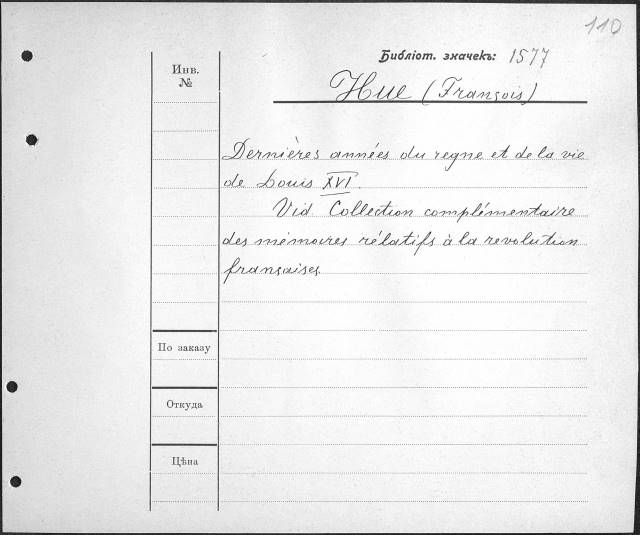 110
Библіот. значекъ: 1577
Инв.
№
Hue (François)
Dernières années du regne et de la vie
de Louis XVI.
Vid. Collection complémentaire
des mémoires rélatifs à la revolution
françaises.
По заказу
Откуда
Цѣна